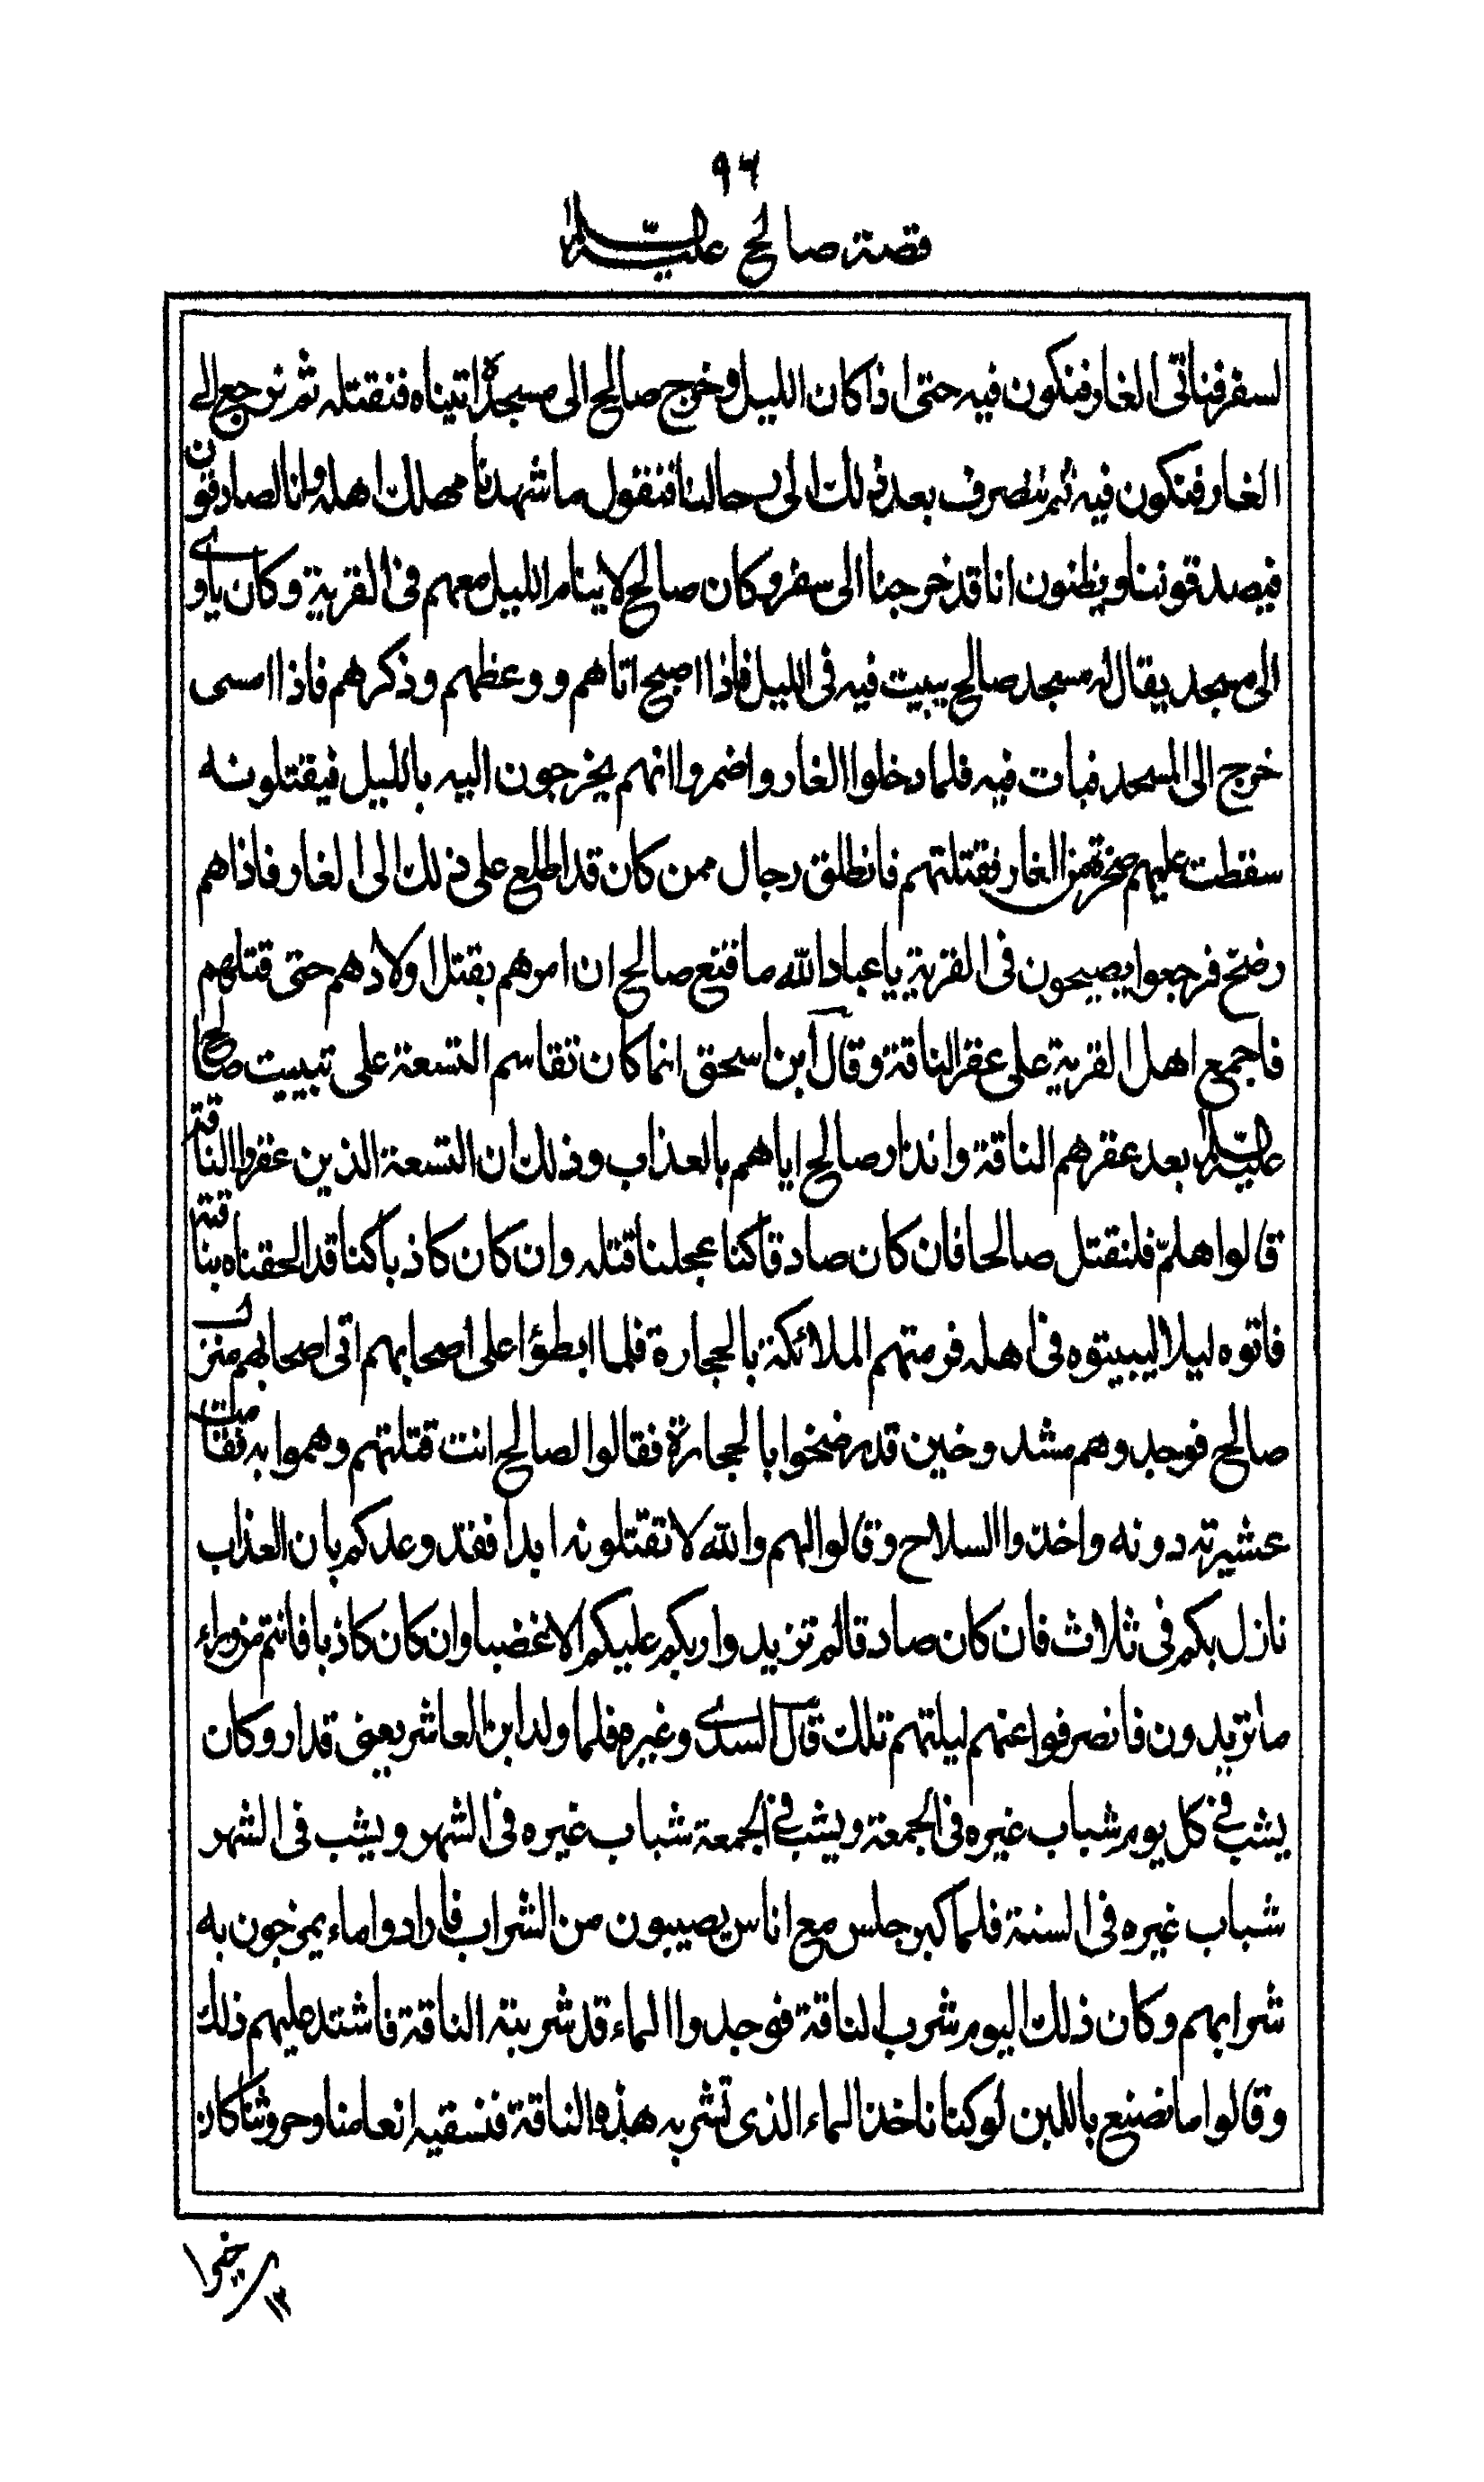 ٩٦
قصة صالح عليه السلام
لسفر فناتى الغار فنكون فيه حتى اذا كان الليل وخرج صالح الى مسجده اتيناه فنقتله ثم نرجع الے
الغار فنكون فيه ثم ننصرف بعد ذلك الى رحالنا فنقول ما شهدنا مهلك اهله وانا لصادقون
فيصدقوننا ويظنون انا قد خرجنا الى سفر وكان صالح لا ينام الليل معهم فى القرية وكان ياوے
الى مسجد يقال له مسجد صالح يبيت فيه فى الليل فاذا اصبح اتاهم ووعظهم وذكرهم فاذا امسى
خرج الى المسجد فبات فيه فلما دخلوا الغار واضمروا انهم يخرجون اليه بالليل فيقتلونه
سقطت عليهم صخرة من الغار فقتلتهم فانطلق رجال ممن كان قد اطلع على ذلك الى الغار فاذا هم
رضخ فرجعوا يصيحون فى القرية يا عباد الله ما قنع صالح ان امرهم بقتل اولادهم حتى قتلهم
فاجمع اهل القرية على عقر الناقة وقال ابن اسحق انما كان تقاسم التسعة على تبييت صالح
عليه السلام بعد عقرهم الناقة وانذار صالح اياهم بالعذاب وذلك ان التسعة الذين عقروا الناقة
قالوا هلمّ فلنقتل صالحا فان كان صادقا كنا عجلنا قتله وان كان كاذبا كنا قد الحقناه بناقته
فاتوه ليلا ليبيتوه فى اهله فرمتهم الملائكة بالحجارة فلما ابطؤا على اصحابهم اتى اصحابهم منزل
صالح فوجدوهم مشدوخين قد رضخوا بالحجارة فقالوا لصالح انت قتلتهم وهموا به فقامت
عشيرته دونه واخذوا السلاح وقالوا لهم والله لا تقتلونه ابدا فقد وعدكم بان العذاب
نازل بكم فى ثلاث فان كان صادقا لم تزيدوا ربكم عليكم الا غضبا وان كان كاذبا فانتم من وراء
ما تريدون فانصرفوا عنهم ليلتهم تلك قال السدى وغيره فلما ولد ابن العاشر يعنى قدار وكان
يشب فے كل يوم شباب غيره فى الجمعة ويشب فے الجمعة شباب غيره فى الشهر ويشب فى الشهر
شباب غيره فى السنة فلما كبر جلس مع اناس يصيبون من الشراب فارادوا ماء يمزجون به
شرابهم وكان ذلك اليوم شرب الناقة فوجدوا الماء قد شربته الناقة فاشتد عليهم ذلك
وقالوا ما نصنع باللبن لو كنا ناخذ الماء الذى تشربه هذه الناقة فنسقيه انعامنا وحروثنا كان